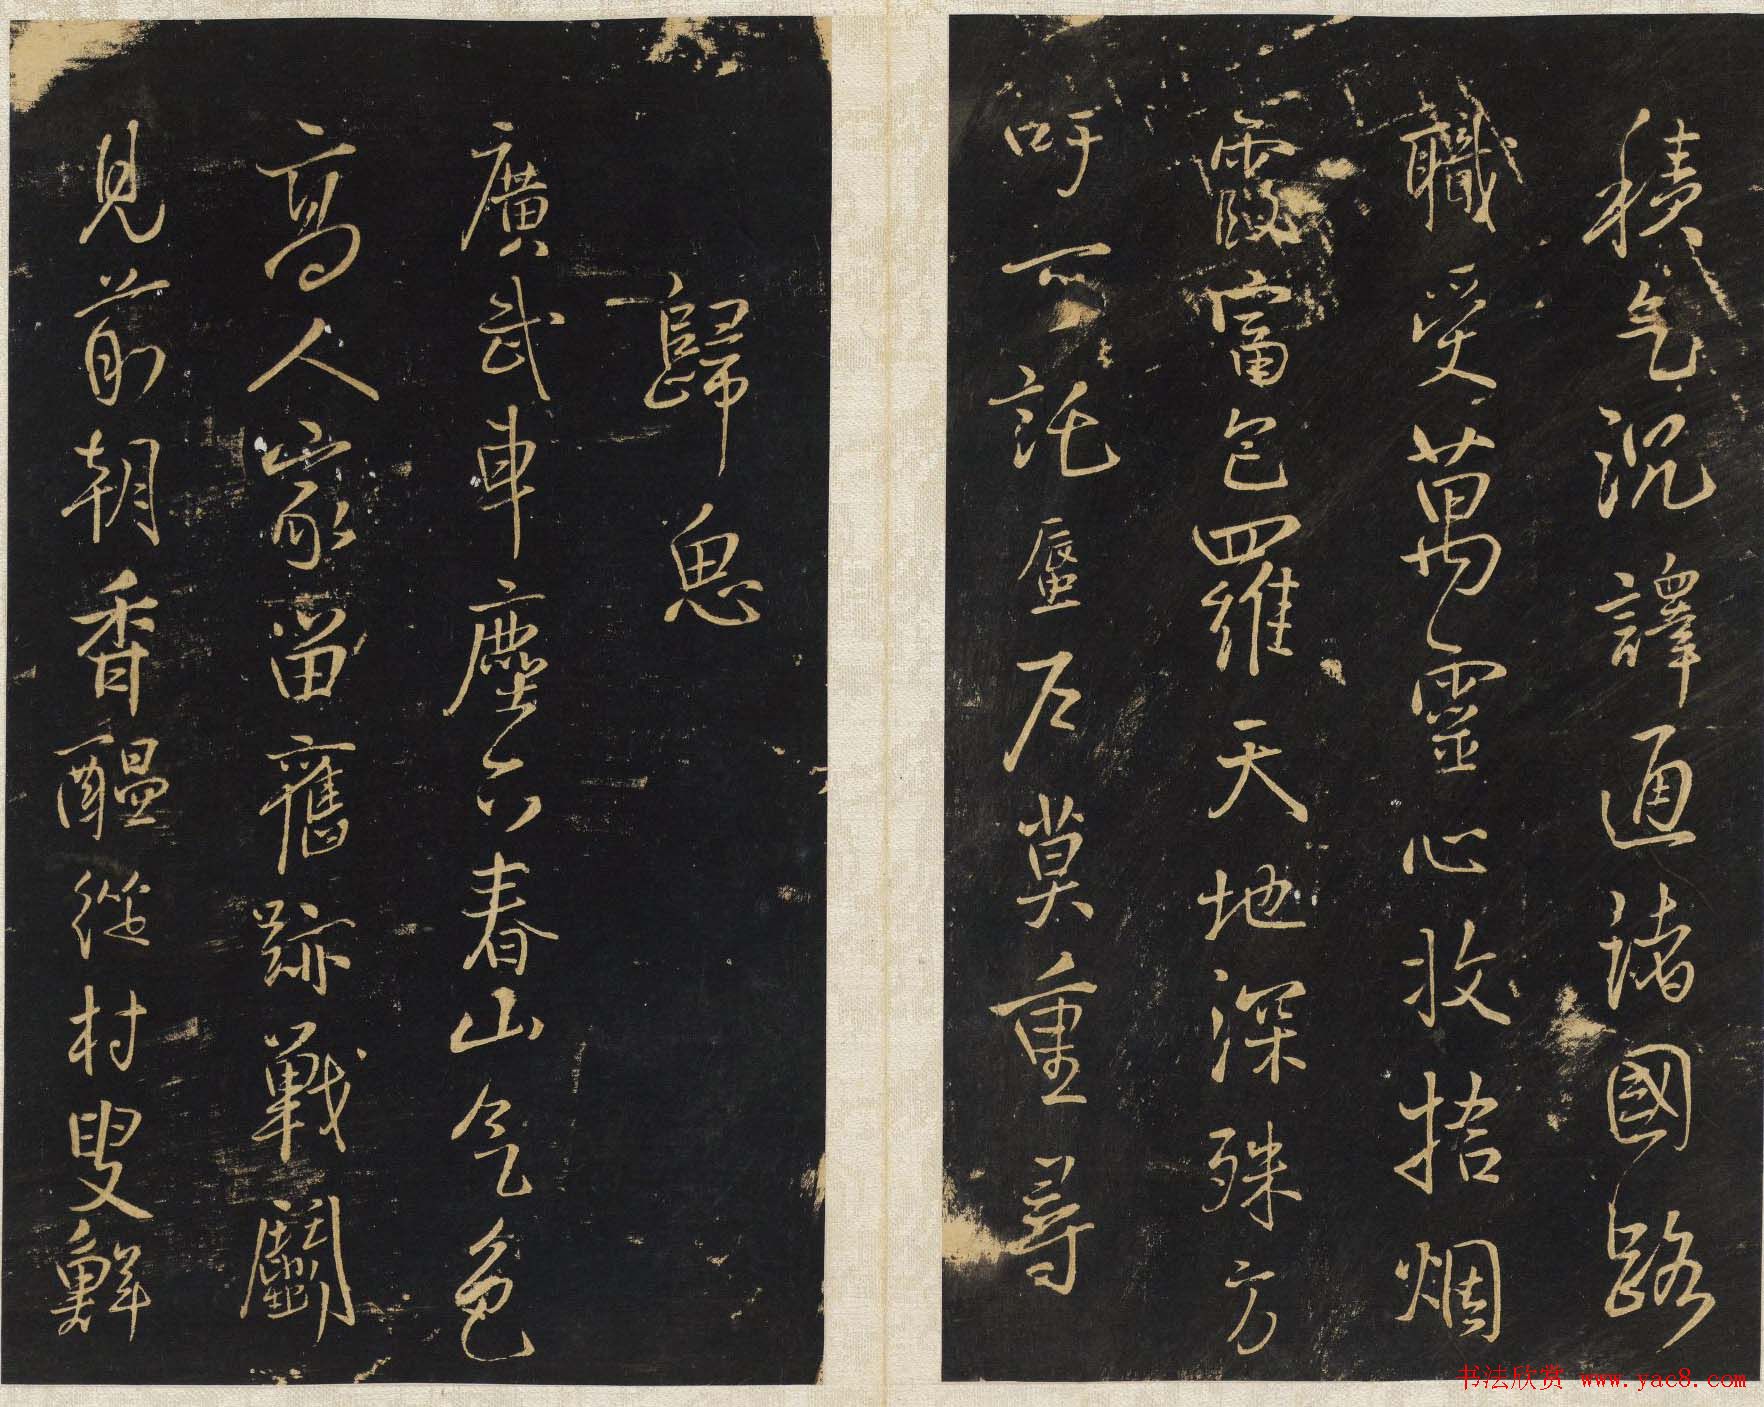 積气沉譯通諸國路
職受萬靈心收拾烟
霞富包羅天地深殊方
吁可託蜃尺莫重尋
歸思
廣武車塵六春山气色
高人家留舊跡戰鬬
見前朝香醞從村叟鮮
书法欣赏 www.yac8.com